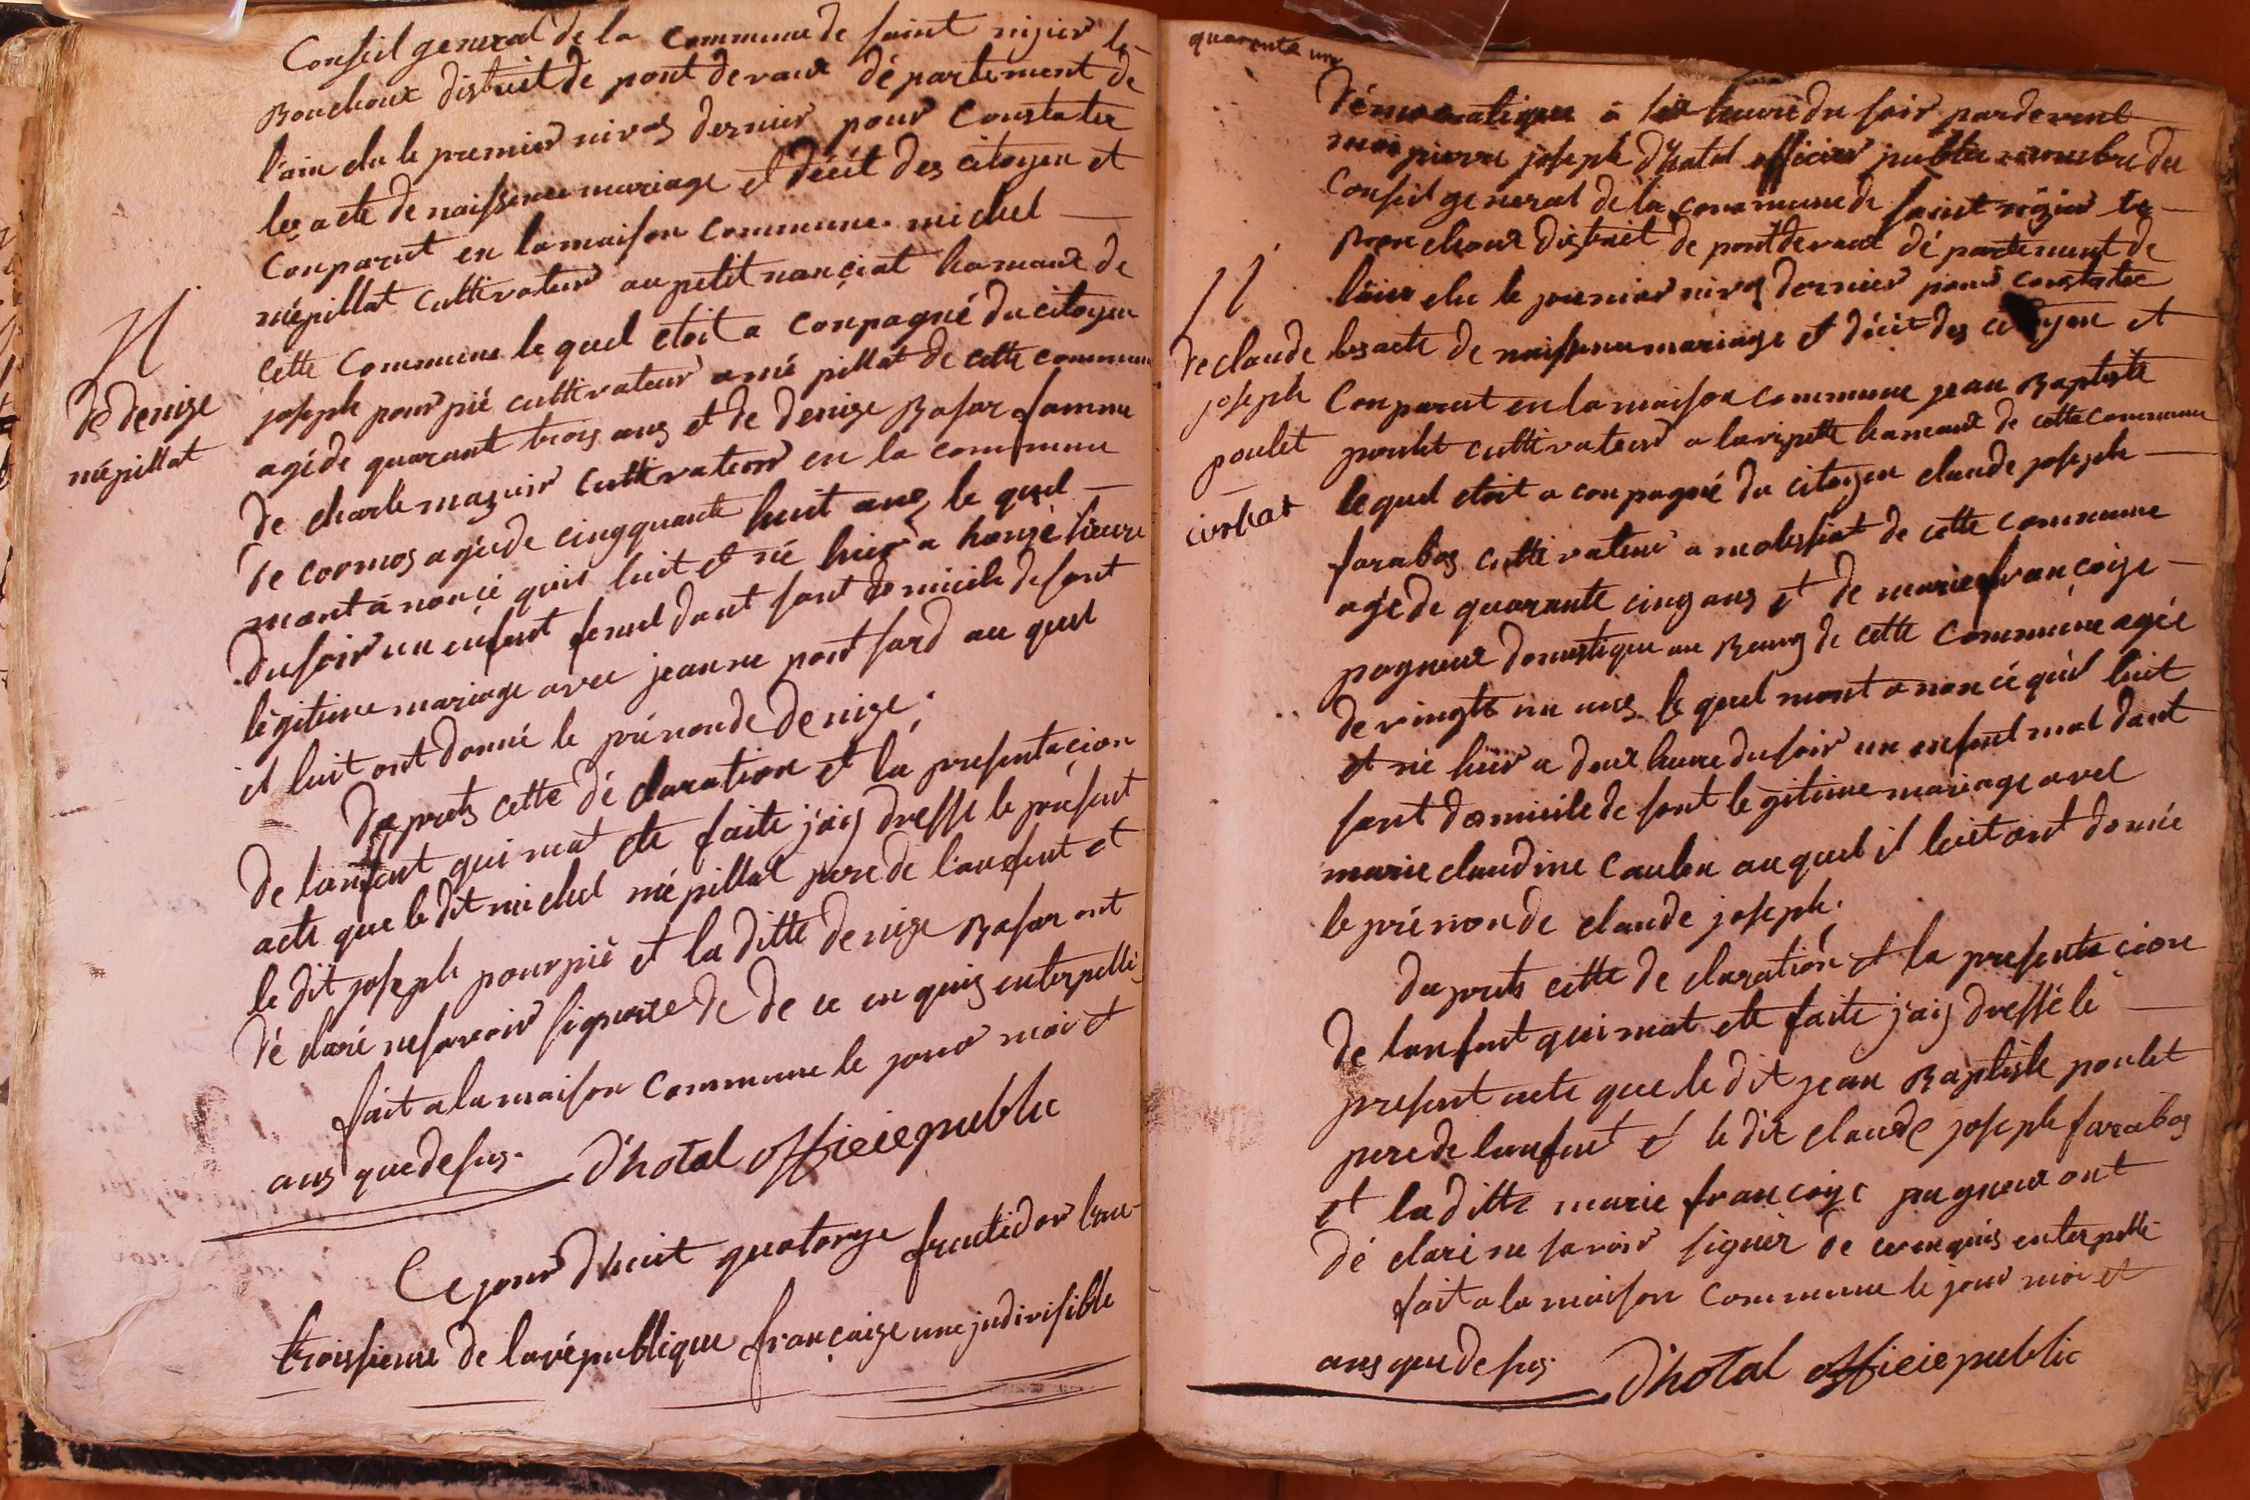 Conseil general de la commune de saint nizier le
Bouchoux district de pont devaux département de
l'ain elu le premier nivos dernier pour constater
les acte de naissence mariage et décit des citoyen et
Conparut en la maison commune michel
népillat cultivateur au petit nanciat hamaux de
cette commune le quel etoit a conpagné du citoyen
joseph pourpié cultivateur a népillat de cette commune
agé de quarant trois ans et de denize Bafar famme
de charle mazuir cultivateur en la commune
de cormos agé de cinqquante huit ans le quel
mont a noncé quis luit et né hier a honze heure
du soir un enfant femel dant sont domicile de sont
légitime mariage avec jeanne pont fard au quel
il luit ont donné le prénon de denize ;
Daprets cette dé claration et la presentacion
de lanfant qui mat ete faite jais dresse le présent
acte que le dit michel népillat pere de l'anfant et
le dit joseph pourpié et la ditte denize Bafar ont
dé claré ne savoir signer de de ce en quis enterpellé
fait a la maison commune le jour moi et
ans que desus. d'hotal officie public
Ce jour dhuit quatorze fructidor lan
troissieme de la république françaize une jndivisible
N
de denize
népillat
quarante un
démocratique a six heure du soir pardevent
moi pierre joseph d'hotal officier public menbre du
Conseil general de la commune de saint nizier le
Bouchoux district de pont devaux dé partement de
l'ain elu le premier nivos dernier pour constater
les acte de naissence mariage et décit des citoyen et
Conparut en la maison commune jean Baptiste
poulet cultivateur a la ripette hamaux de cette commune
le quel etoit a conpagné du citoyen claude joseph
farabos cultivateur a molissiat de cette commune
agé de quarante cinq ans et de marie françoize
pagneux domestique au Bourg de cette commune agée
de vingts un ans le quel mont a noncé quil luit
et né hier a deux heure du soir un enfant mal dant
sont domicile de sont legitime mariage avec
marie claudine Caulen au quel il luit ont donnée
le prénon de claude joseph ;
daprets cette de claration et la presentacion
de lanfant qui mat ete faite jais dressé le
present acte que le dit jean Baptiste poulet
pere de lanfant et le dit claude joseph farabos
et la ditte marie françoize pagneux ont
dé claré ne savoir signer de ce en quis enterpellé
fait a la maison commune le jour moi et
ans que desus. d'hotal officie public
N
de claude
joseph
poulet
curhat